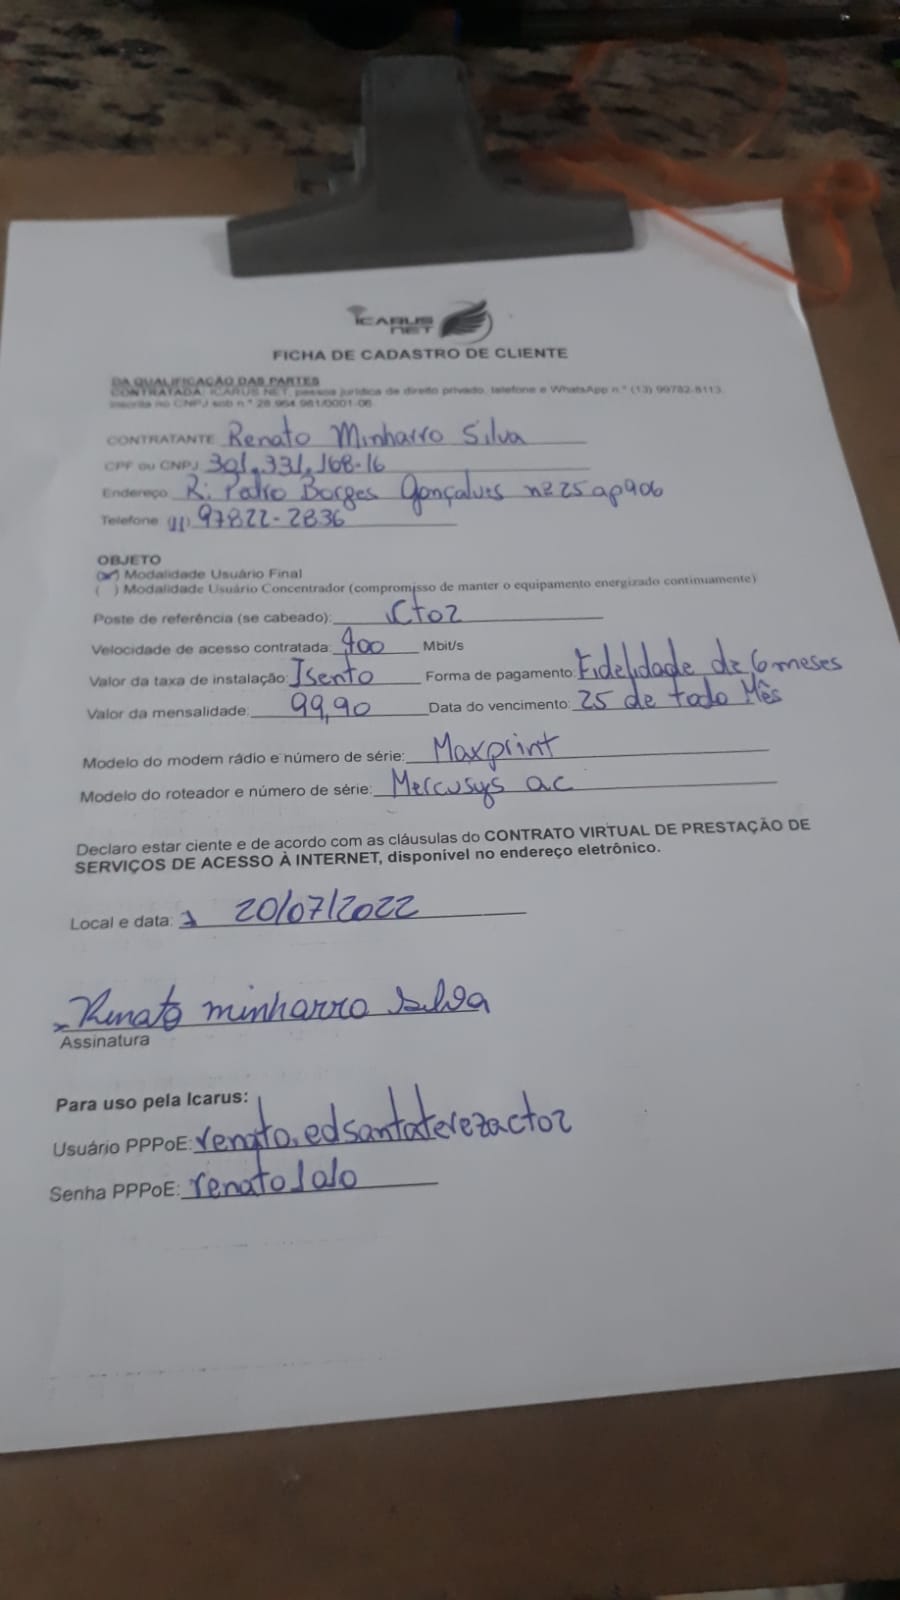 ICARUS
NET
FICHA DE CADASTRO DE CLIENTE
DA QUALIFICAÇÃO DAS PARTES
CONTRATADA: ICARUS NET, pessoa jurídica de direito privado, telefone e WhatsApp n.º (13) 99782-8113,
inscrita no CNPJ sob n.º 28.964.981/0001-06
CONTRATANTE Renato Minharro Silva
CPF ou CNPJ 301.331.168-16
Endereço R. Pedro Borges Gonçalves nº 25 ap 906
Telefone (11) 97822-2836
OBJETO
(x) Modalidade Usuário Final
( ) Modalidade Usuário Concentrador (compromisso de manter o equipamento energizado continuamente)
Poste de referência (se cabeado): Cto2
Velocidade de acesso contratada: 400 Mbit/s
Valor da taxa de instalação: Isento Forma de pagamento: Fidelidade de 6 meses
Valor da mensalidade: 99,90 Data do vencimento: 25 de todo Mês
Modelo do modem rádio e número de série: Maxprint
Modelo do roteador e número de série: Mercusys ac
Declaro estar ciente e de acordo com as cláusulas do CONTRATO VIRTUAL DE PRESTAÇÃO DE
SERVIÇOS DE ACESSO À INTERNET, disponível no endereço eletrônico.
Local e data: 20/07/2022
Renato minharro Silva
Assinatura
Para uso pela Icarus:
Usuário PPPoE: renato.edsantaterezacto2
Senha PPPoE: renato1010